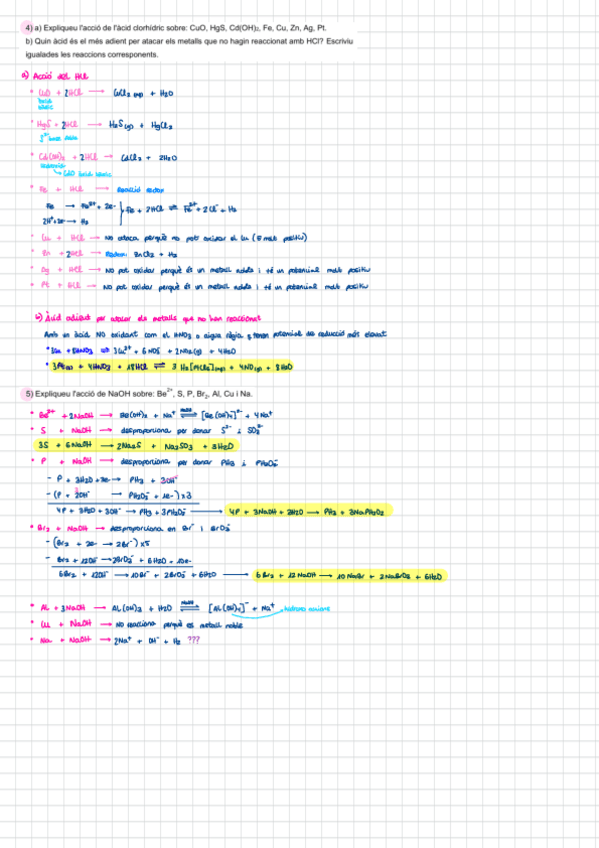 4) a) Expliqueu l'acció de l'àcid clorhídric sobre: CuO, HgS, Cd(OH)₂, Fe, Cu, Zn, Ag, Pt.
b) Quin àcid és el més adient per atacar els metalls que no hagin reaccionat amb HCl? Escriviu
igualades les reaccions corresponents.
a) Acció del HCl
• CuO + 2HCl → CuCl₂ (aq) + H₂O
òxid bàsic
• HgS + 2HCl → H₂S(g) + HgCl₂
• Cd(OH)₂ + 2HCl → CdCl₂ + 2H₂O
• Fe + HCl → Reacció redox
Fe → Fe²⁺ + 2e⁻ } Fe + 2HCl ⇌ Fe²⁺ + 2Cl⁻ + H₂
2H⁺+2e⁻ → H₂
• Cu + HCl → No ataca perquè no pot oxidar el Cu (E molt positiu)
• Zn + 2HCl → Redox: ZnCl₂ + H₂
• Ag + HCl → No pot oxidar perquè és un metall noble i té un potencial molt positiu
• Pt + HCl → No pot oxidar perquè és un metall noble i té un potencial molt positiu
b) Àcid adient per atacar els metalls que no han reaccionat
Amb un àcid NO oxidant com el HNO₃ o aigua règia, tenen potencial de reducció més elevat
• 3Pt(s) + 4HNO₃ + 18HCl ⇌ 3 H₂[PtCl₆](aq) + 4NO(g) + 8H₂O
5) Expliqueu l'acció de NaOH sobre: Be²⁺, S, P, Br₂, Al, Cu i Na.
• Be²⁺ + 2NaOH → Be(OH)₂ + Na⁺ ⇌ [Be(OH)₄]²⁻ + 4Na⁺
• S + NaOH → desproporciona per donar S²⁻ i SO₃²⁻
3S + 6NaOH → 2Na₂S + Na₂SO₃ + 3H₂O
• P + NaOH → desproporciona per donar PH₃ i PH₂O₂⁻
- P + 3H₂O + 3e⁻ → PH₃ + 3OH⁻
- (P + 2OH⁻ → PH₂O₂⁻ + 1e⁻) x3
4P + 3H₂O + 3OH⁻ → PH₃ + 3PH₂O₂⁻ → 4P + 3NaOH + 3H₂O → PH₃ + 3NaPH₂O₂
• Br₂ + NaOH → desproporciona en Br⁻ i BrO₃⁻
- (Br₂ + 2e⁻ → 2Br⁻) x5
- Br₂ + 12OH⁻ → 2BrO₃⁻ + 6H₂O + 10e⁻
6Br₂ + 12OH⁻ → 10Br⁻ + 2BrO₃⁻ + 6H₂O → 6Br₂ + 12NaOH → 10NaBr + 2NaBrO₃ + 6H₂O
• Al + 3NaOH → Al(OH)₃ + H₂O ⇌ [Al(OH)₄]⁻ + Na⁺
• Cu + NaOH → No reacciona perquè és metall noble
• Na + NaOH → 2Na⁺ + OH⁻ + H₂ ???